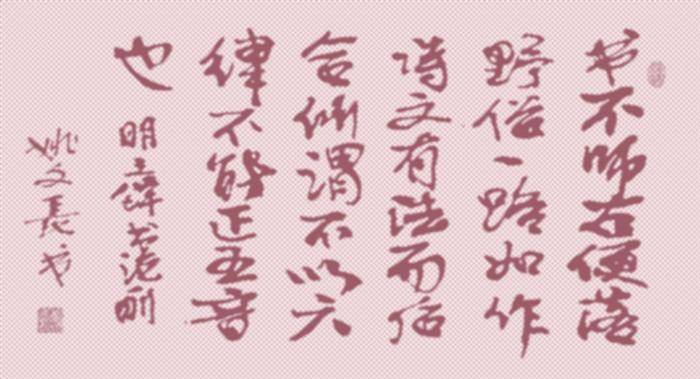 书不师古便落
野俗一路如作
诗文有法而后
合所谓不以六
律不能正五音
也 明王铎书
姚文長书